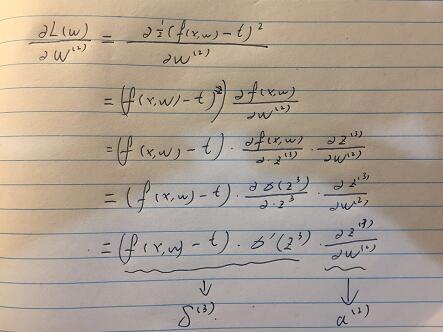 ∂L(w)/∂w⁽²⁾ = ∂ ½ (f(x,w) - t)² / ∂w⁽²⁾
= (f(x,w) - t) ∂f(x,w)/∂w⁽²⁾
= (f(x,w) - t) · ∂f(x,w)/∂·z⁽³⁾ · ∂z⁽³⁾/∂w⁽²⁾
= (f(x,w) - t) · ∂σ(z³)/∂·z³ · ∂z⁽³⁾/∂w⁽²⁾
= (f(x,w) - t) · σ'(z³) · ∂z⁽³⁾/∂w⁽²⁾
↓ ↓
δ⁽³⁾ a⁽²⁾